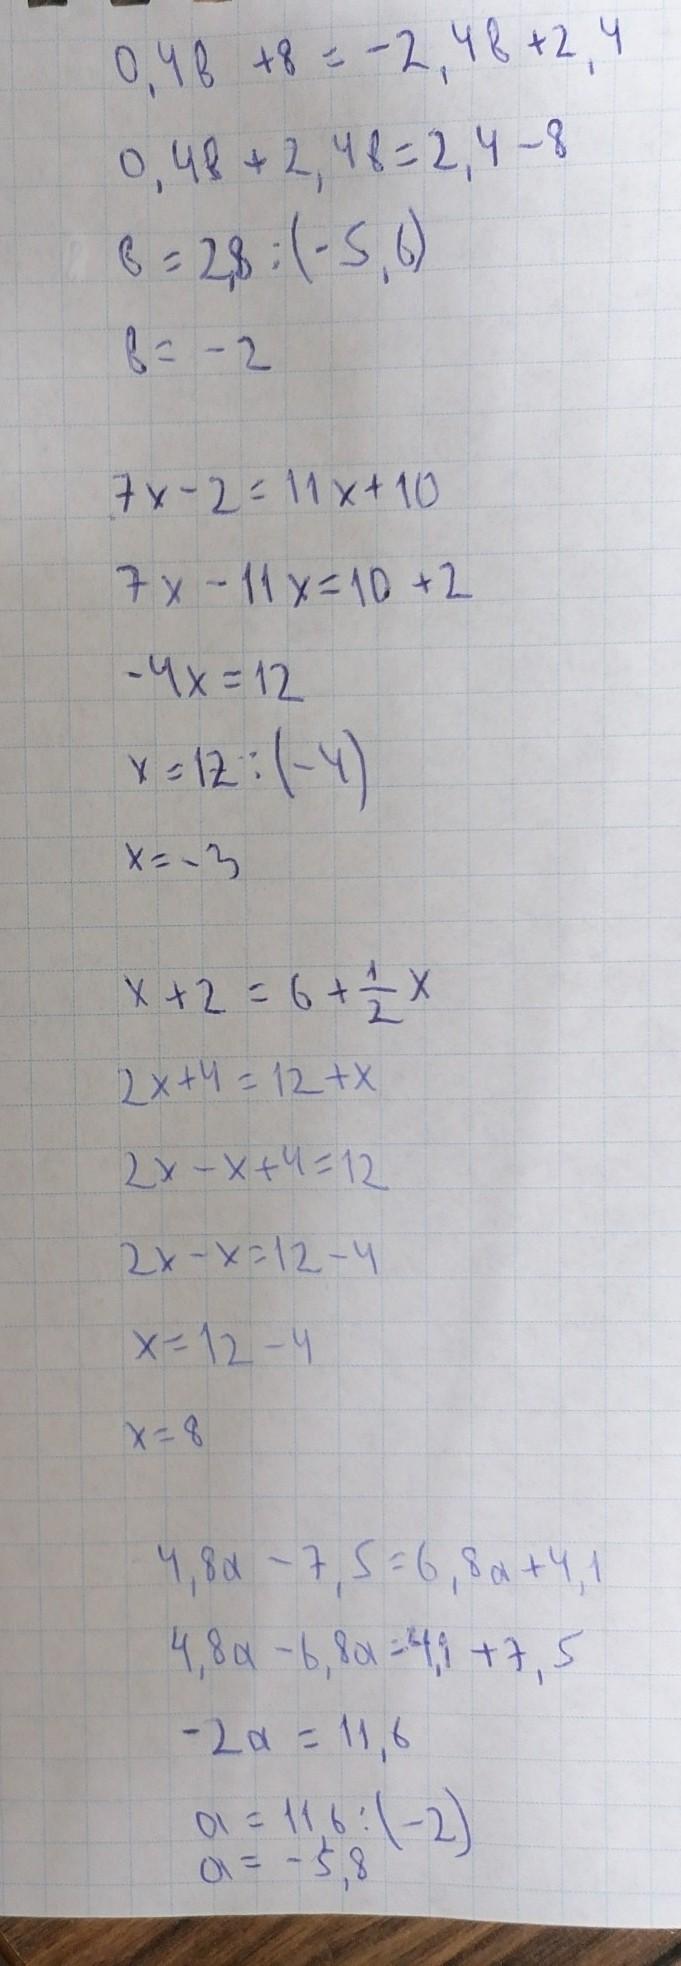 0,4в +8 = -2,4в +2,4
0,4в + 2,4в = 2,4 - 8
в = 2,8 : (-5,6)
в = -2
7x - 2 = 11x + 10
7x - 11x = 10 + 2
-4x = 12
x = 12 : (-4)
x = -3
x + 2 = 6 + 1/2 x
2x + 4 = 12 + x
2x - x + 4 = 12
2x - x = 12 - 4
x = 12 - 4
x = 8
4,8a - 7,5 = 6,8a + 4,1
4,8a - 6,8a = 4,1 + 7,5
-2a = 11,6
a = 11,6 : (-2)
a = -5,8